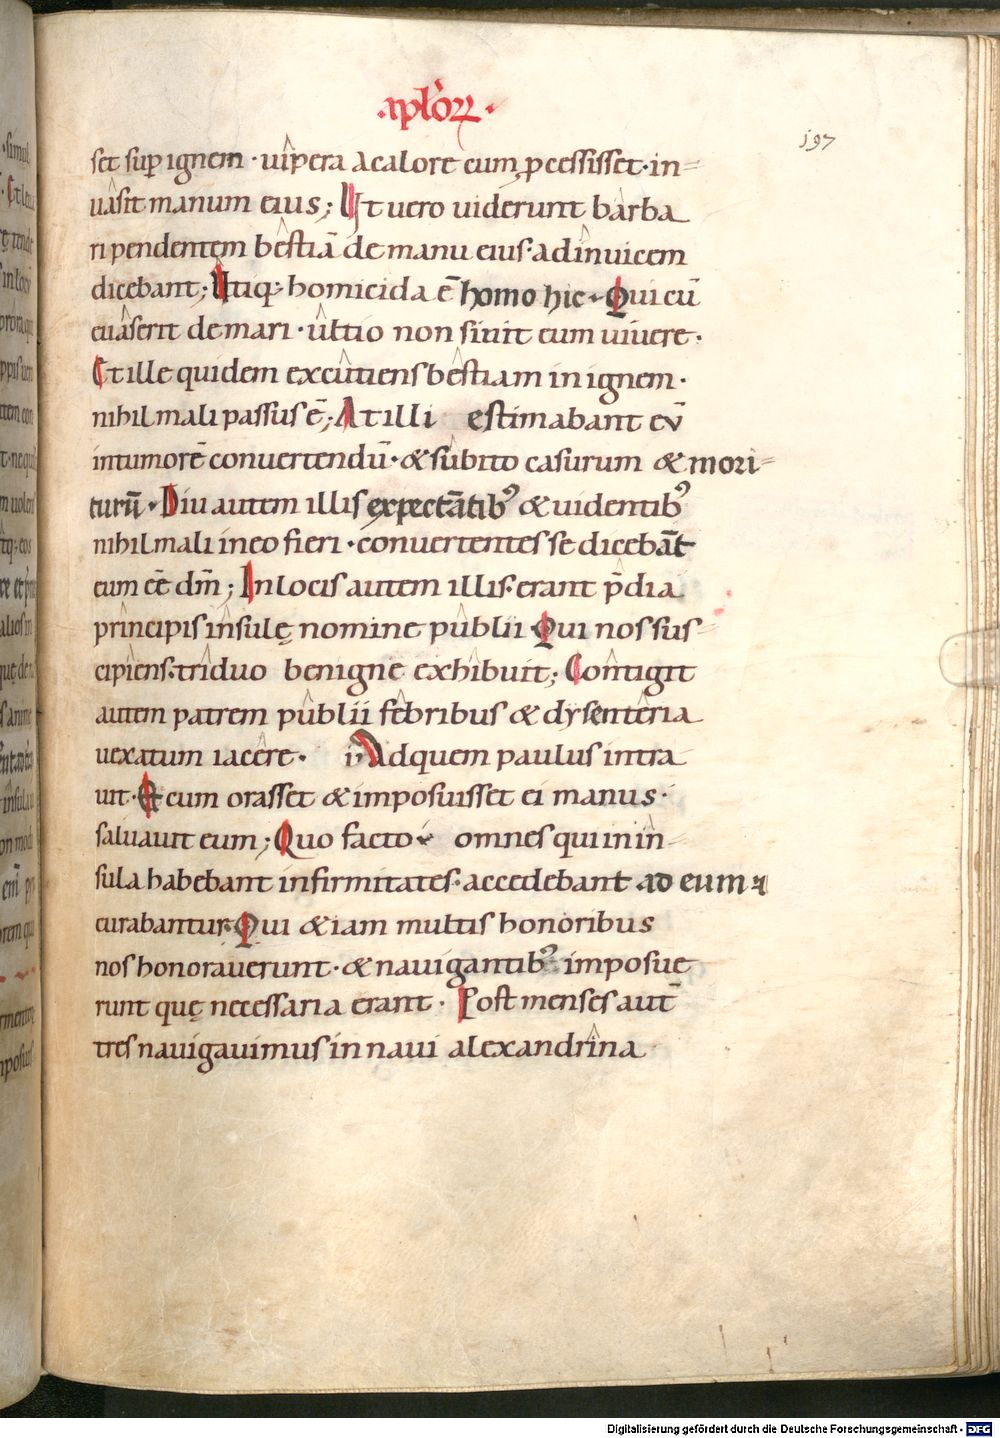 ·aplo̅ꝝ·
197
set sup ignem · uipera a calore cum ꝓcessisset · in-
uasit manum eius; Ut uero uiderunt barba
ri pendentem bestiā de manu eius · adinuicem
dicebant; Utiq; homicida ē homo hic · Qui cū
euaserit de mari · ultio non sinit eum uiuere ·
Et ille quidem excutiens bestiam in ignem ·
nihil mali passus ē; At illi estimabant eū
in tumorē conuertendū · & subito casurum & mori-
turū · Diu autem illis expectātibꝰ & uidentibꝰ
nihil mali in eo fieri · conuertentes se dicebāt
eum eē dm̄; In locis autem illis · erant p̄dia
principis insulę nomine publii · Qui nos sus-
cipiens · triduo benigne exhibuit; Contigit
autem patrem publii febribus & dysenteria
uexatum iacere · Ad quem paulus intra
uit · Et cum orasset & imposuisset ei manus ·
saluauit eum; Quo facto · omnes qui in in-
sula habebant infirmitates · accedebant ad eum ⁊
curabantur · Qui & iam multis honoribus
nos honorauerunt · & nauigantibꝰ imposue
runt quę necessaria erant · Post menses aut̄
tres nauigauimus in naui alexandrina
Digitalisierung gefördert durch die Deutsche Forschungsgemeinschaft - DFG